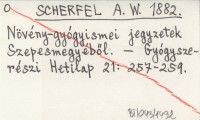 SCHERFEL A. W. 1882.
Növény-gyógyismei jegyzetek
Szepesmegyéből. – Gyógysze-
részi Hetilap 21: 257-259.